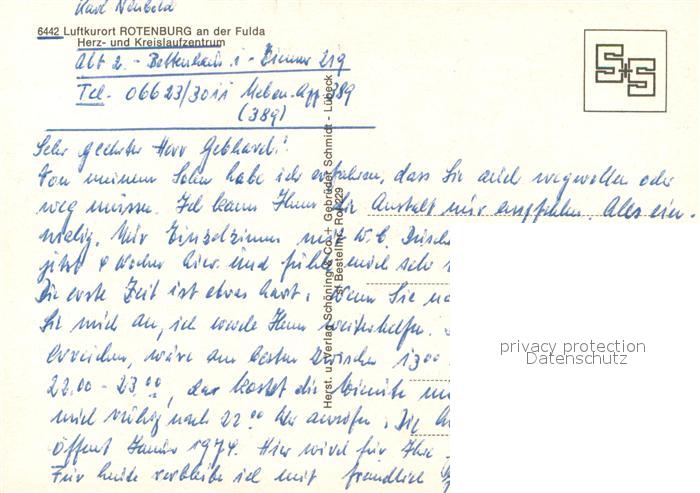 Karl Neubold
6442 Luftkurort ROTENBURG an der Fulda
Herz- und Kreislaufzentrum
Abt 2. - Bettenhaus 1 - Zimmer 219
Tel. 06623/3011 Neben-App. 389
(389)
Sehr geehrter Herr Gebhard!
Von meinem Sohn habe ich erfahren, dass Sie auch wegwollen oder
weg müssen. Ich kann Ihnen die Anstalt nur empfehlen. Alles ein-
malig. Nur Einzelzimmer mit W.C. Dusche
jetzt 4 Wochen hier und fühle mich sehr
Die erste Zeit ist etwas hart. Wenn Sie
Sie mich an, ich werde Ihnen weiterhelfen.
erreichen, wäre am besten zwischen 13 00
22.00 - 23.00, da kostet die Minute
mich ruhig nach 22 00 Uhr anrufen. Die
öffent 1974. Hier wird für Ihre
Für heute verbleibe ich mit freundlich
Herst. u. Verlag Schöning & Co + Gebrüder Schmidt - Lübeck
S+S
privacy protection
Datenschutz